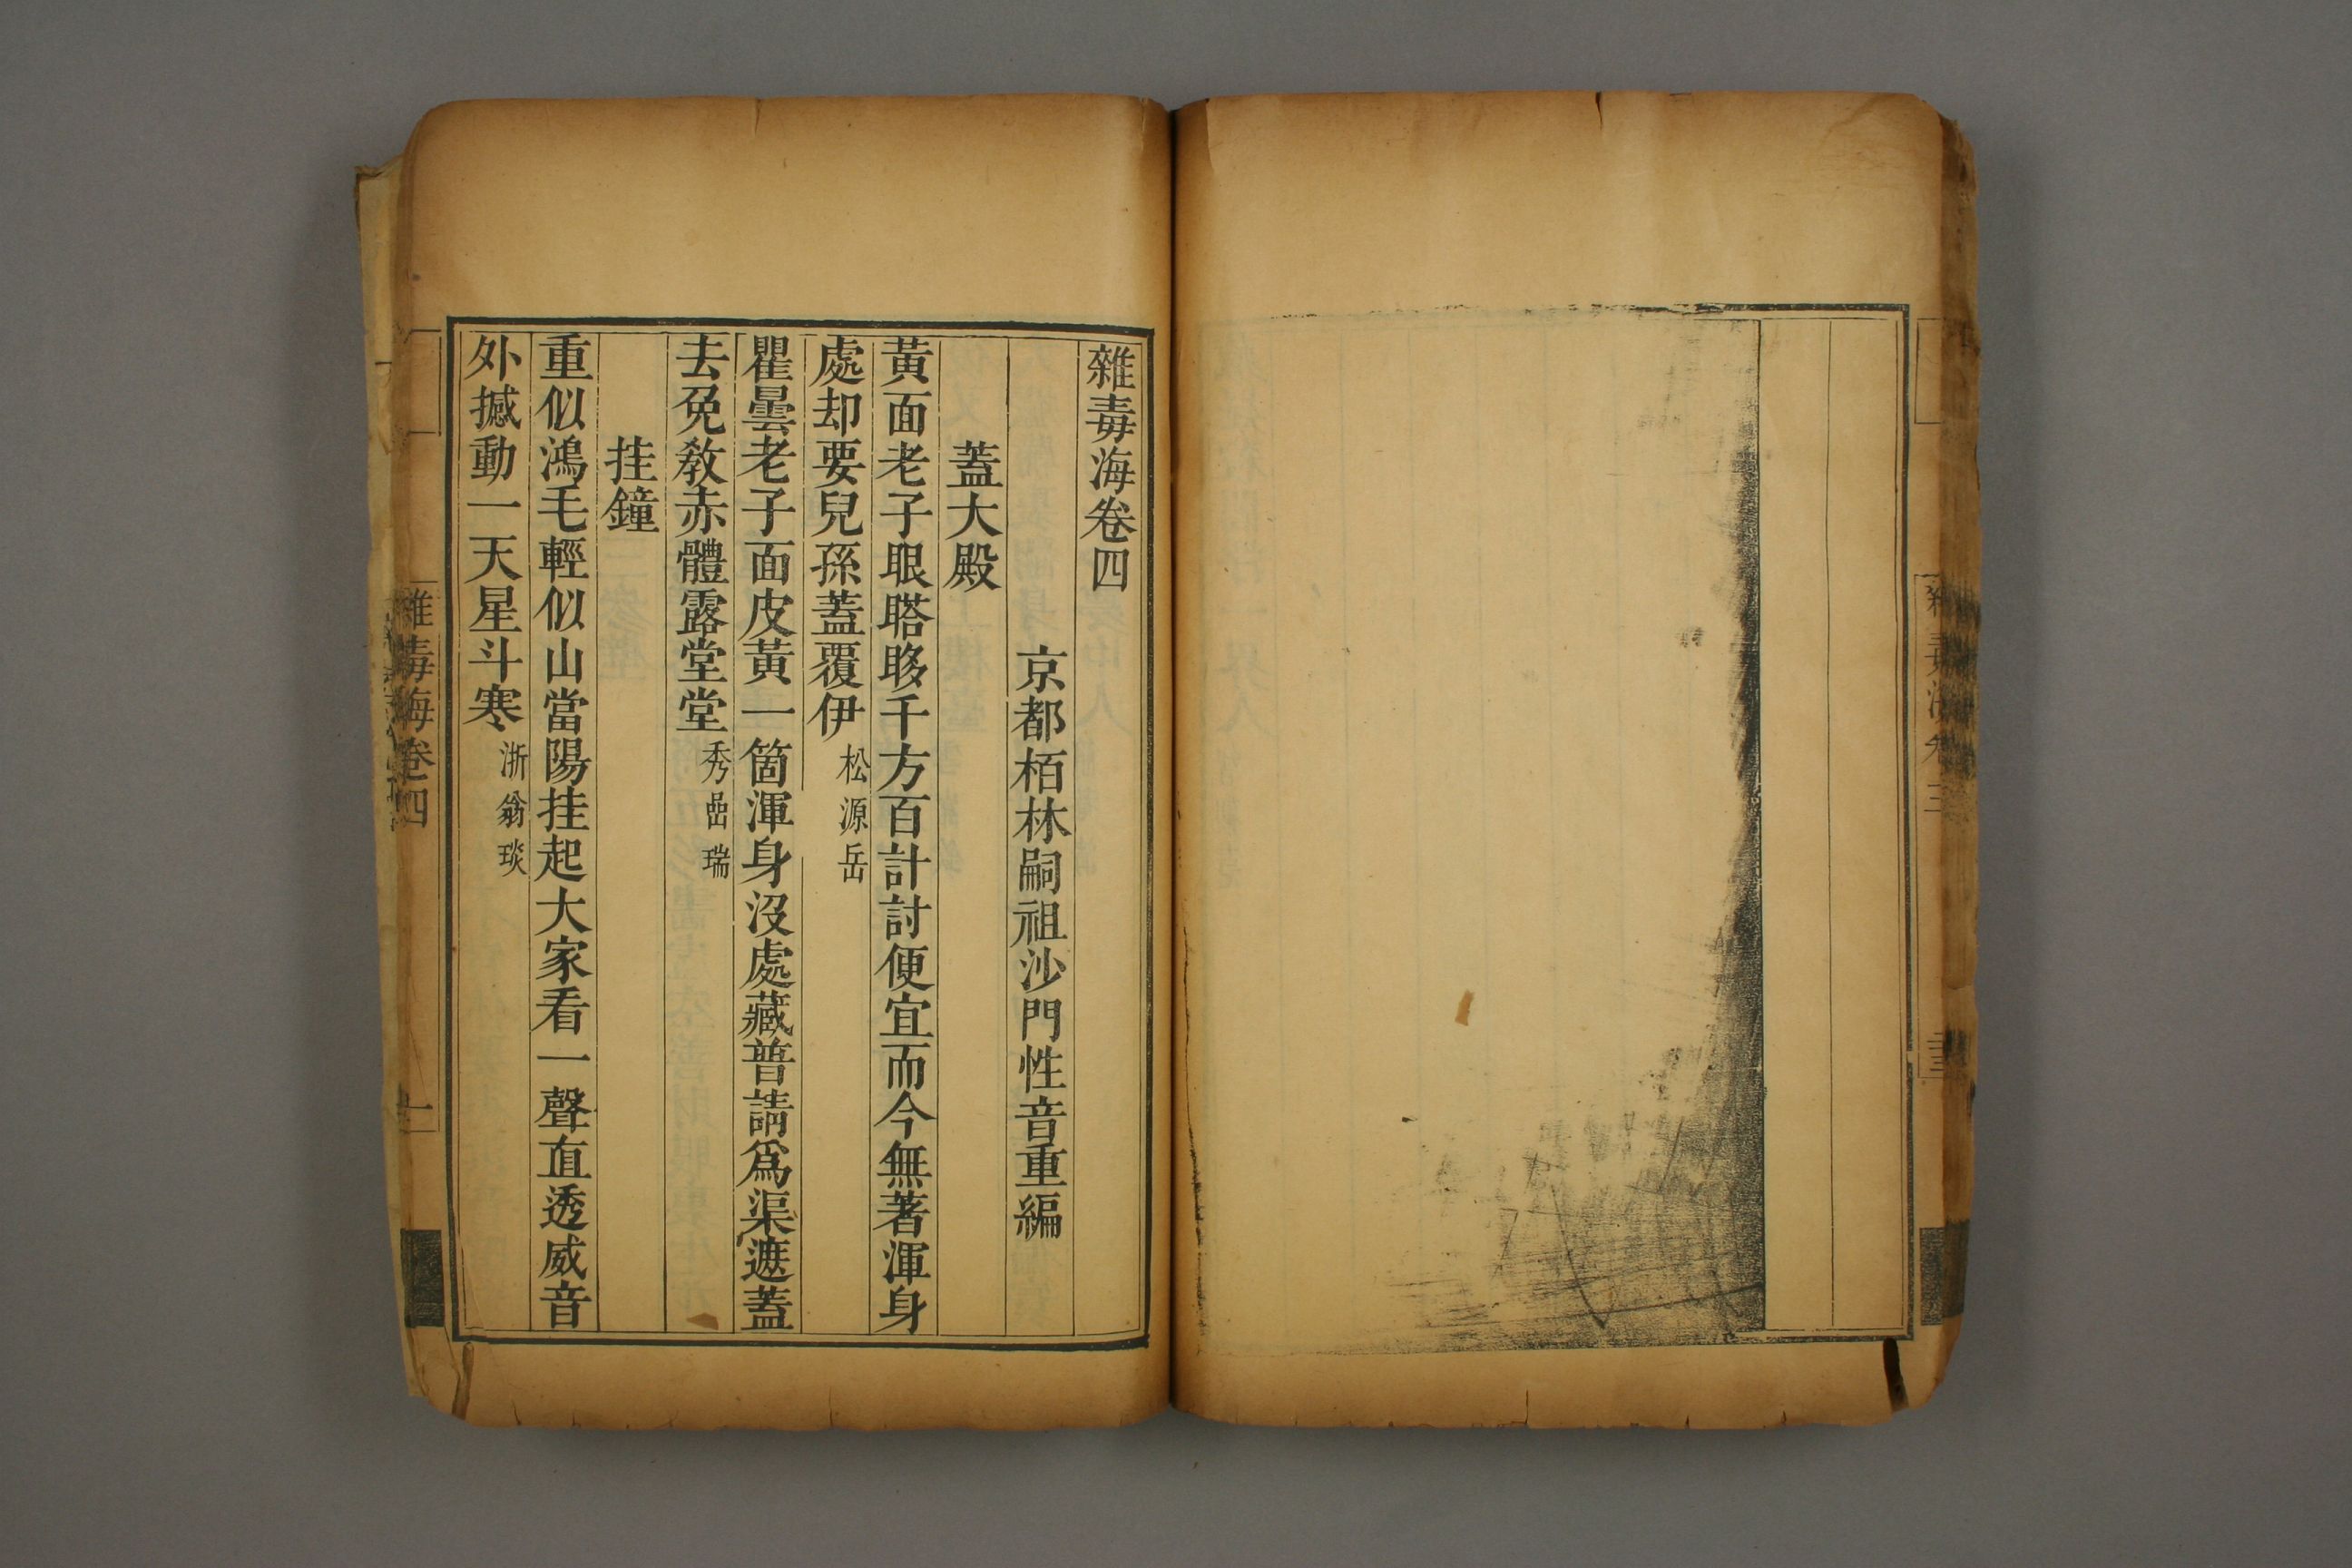 雜毒海卷三
三三
雜毒海卷四
京都栢林嗣祖沙門性音重編
蓋大殿
黃面老子眼䀜眵千方百計討便宜而今無著渾身
處却要兒孫蓋覆伊 松源岳
瞿曇老子面皮黃一箇渾身沒處藏普請爲渠遮蓋
去免教赤體露堂堂 秀嵒瑞
挂鐘
重似鴻毛輕似山當陽挂起大家看一聲直透威音
外撼動一天星斗寒 浙翁琰
雜毒海卷四
一